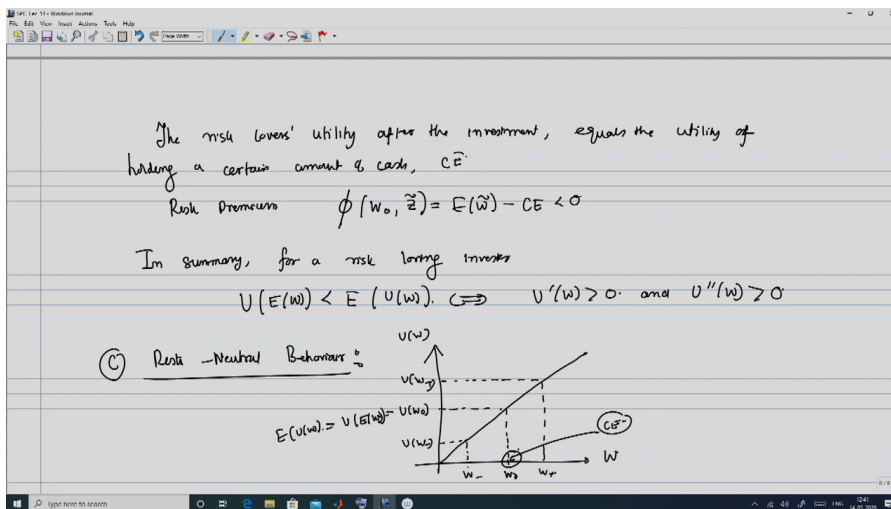 SPC Lec 14 - Windows Journal
File Edit View Insert Actions Tools Help
Page Width
The risk lovers' utility after the investment, equals the utility of
holding a certain amount of cash, CE
Risk Premium ϕ(W₀, z̃) = E(w̃) - CE < 0
In summary, for a risk loving investor
U(E(W)) < E(U(W)). ⟺ U'(W) > 0. and U''(W) > 0
Ⓒ Risk-Neutral Behaviour:
U(W)
U(W₊)
E(U(W)) = U(E(W)) = U(W₀)
U(W₋)
CE
W₋ W₀ W₊ W
8/8
Type here to search
ENG 12:41
14-05-2020